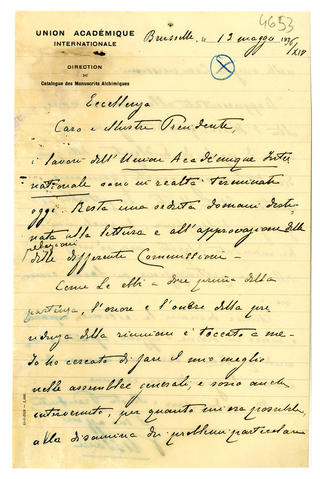 4653
UNION ACADÉMIQUE
INTERNATIONALE
DIRECTION
DU
Catalogue des Manuscrits Alchimiques
Bruxelles, 12 maggio 1936/XIV
Eccellenza
Caro e Illustre Presidente,
i lavori dell'Union Académique Inter
nationale sono in realtà terminati
oggi. Resta una seduta domani desti
nata alla lettura e all'approvazione delle
relazioni
delle differenti Commissioni —
Come Le ebbi a dire prima della
partenza, l'onore e l'onere della pre
sidenza della riunione è toccato a me.
Io ho cercato di fare il mio meglio
nelle assemblee generali, e sono anche
intervenuto, per quanto mi era possibile,
alla disamina dei problemi particolari